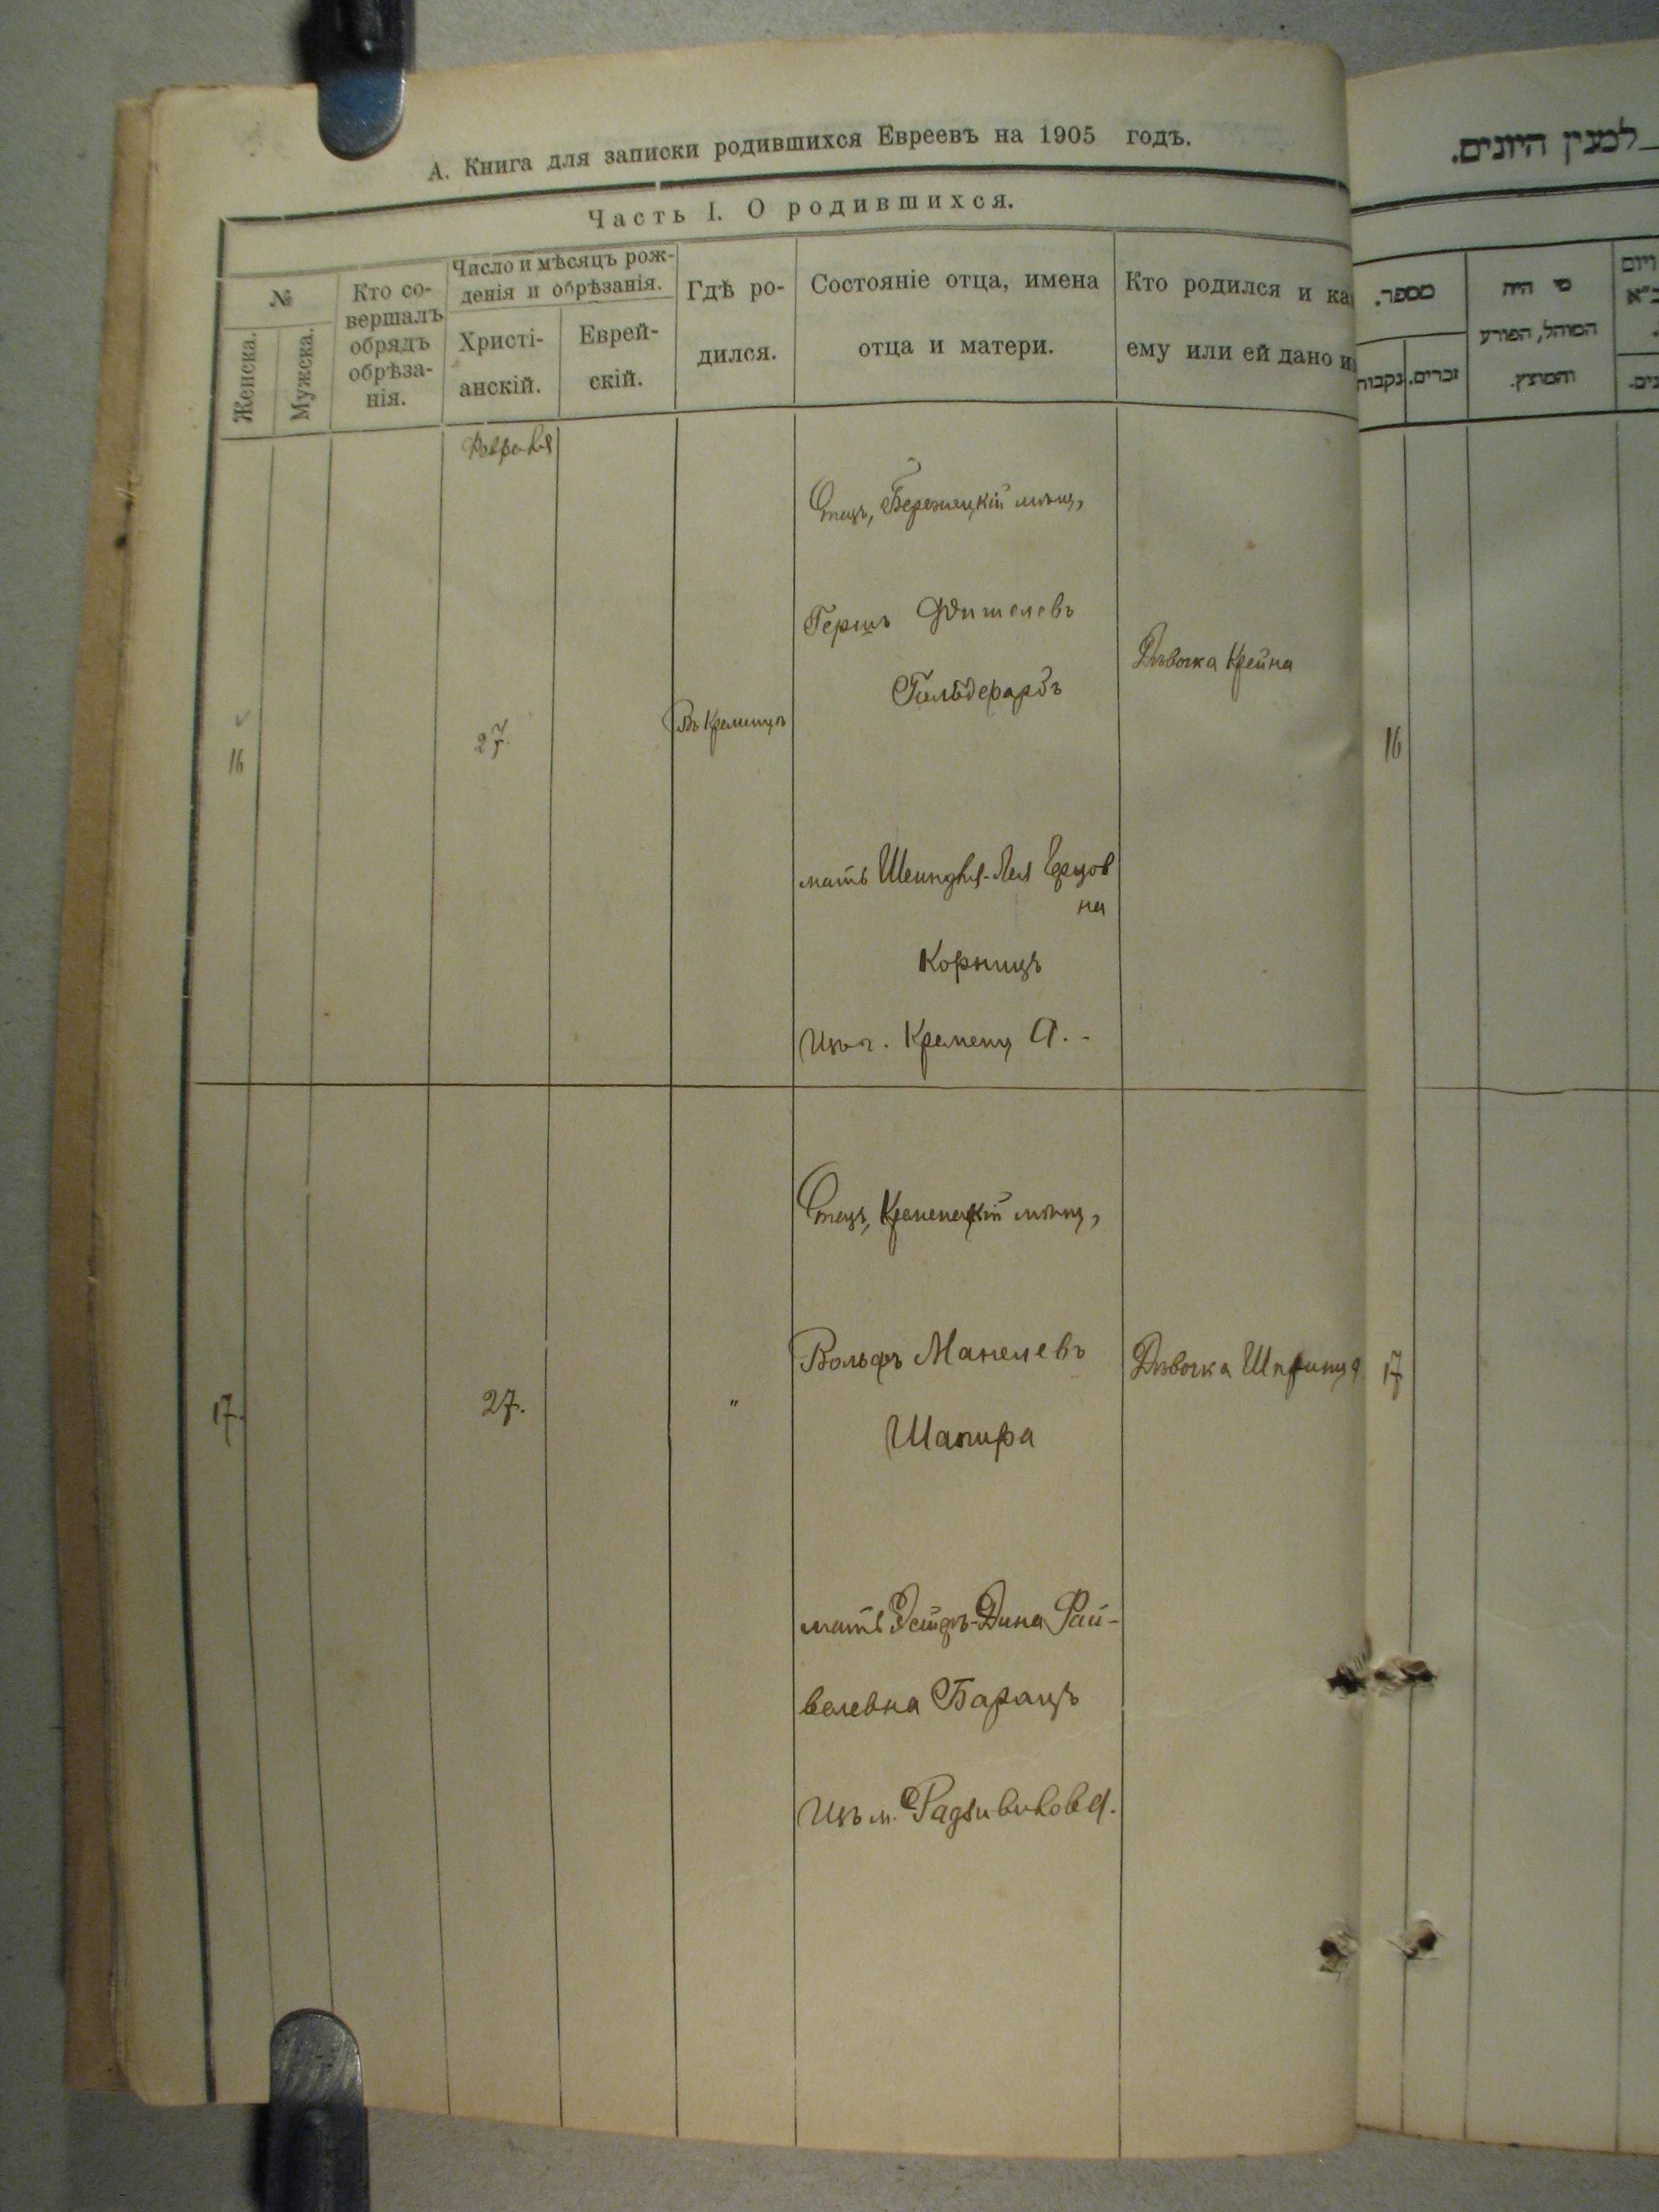 А. Книга для записки родившихся Евреевъ на 1905 годъ.
Часть I. О родившихся.
№
Женска.
Мужска.
Кто со-
вершалъ
обрядъ
обрѣза-
нія.
Число и мѣсяцъ рож-
денія и обрѣзанія.
Христі-
анскій.
Еврей-
скій.
Гдѣ ро-
дился.
Состояніе отца, имена
отца и матери.
Кто родился и ка
ему или ей дано и
Февраля
16
27.
Въ Кременцѣ
Отецъ, мѣщ,
Гершъ Фишелевъ
Гильдефарбъ
мать Шейндля-Лея
на
Корницъ
Изъ г. Кременца.-
Дѣвочка Крейна
17.
27.
"
Отецъ, Кременецкій мѣщ,
Вольфъ Манелевъ
Шапира
мать Эстеръ-Дина Фай-
велевна Барацъ
Изъ м. Радзивилова.
Дѣвочка Шпринца
למנין היונים.
מספר.
נקבות
זכרים.
מי היה
המוהל, הפורע
והמוצץ.
16
17